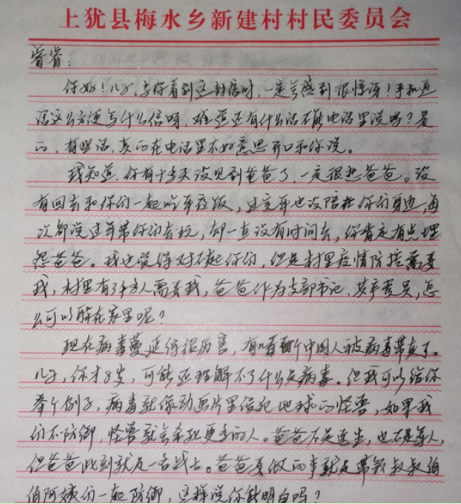 上犹县梅水乡新建村村民委员会
睿睿:
你好!儿子,当你看到这封信时,一定会感到很惊讶!手机通
话这么方便写什么信呀,难道还有什么话不能电话里说吗?是
的,有些话,真的在电话里不好意思开口和你说。
我知道,你有十多天没见到爸爸了,一定很想爸爸。没
有回去和你们一起吃年夜饭,过完年也没陪在你的身边,每
次都说过年带你们去玩,却一直没有时间去,你肯定有点埋
怨爸爸。我也觉得对不起你们,但是村里疫情防控需要
我,村里有3千多人需要我,爸爸作为支部书记、共产党员,怎
么可以躲在家里呢?
现在病毒蔓延得很厉害,有 中国人被病毒带走了。
儿子,你才8岁,可能还理解不了什么是病毒。但我可以给你
举个例子,病毒就像动画片里侵犯地球的怪兽,如果我
们不防御,怪兽就会杀死更多的人。爸爸不是医生,也不是军人,
但爸爸此刻就是一名战士。爸爸要做的事就是带领叔叔伯
伯阿姨们一起防御,这样说你能明白吗?